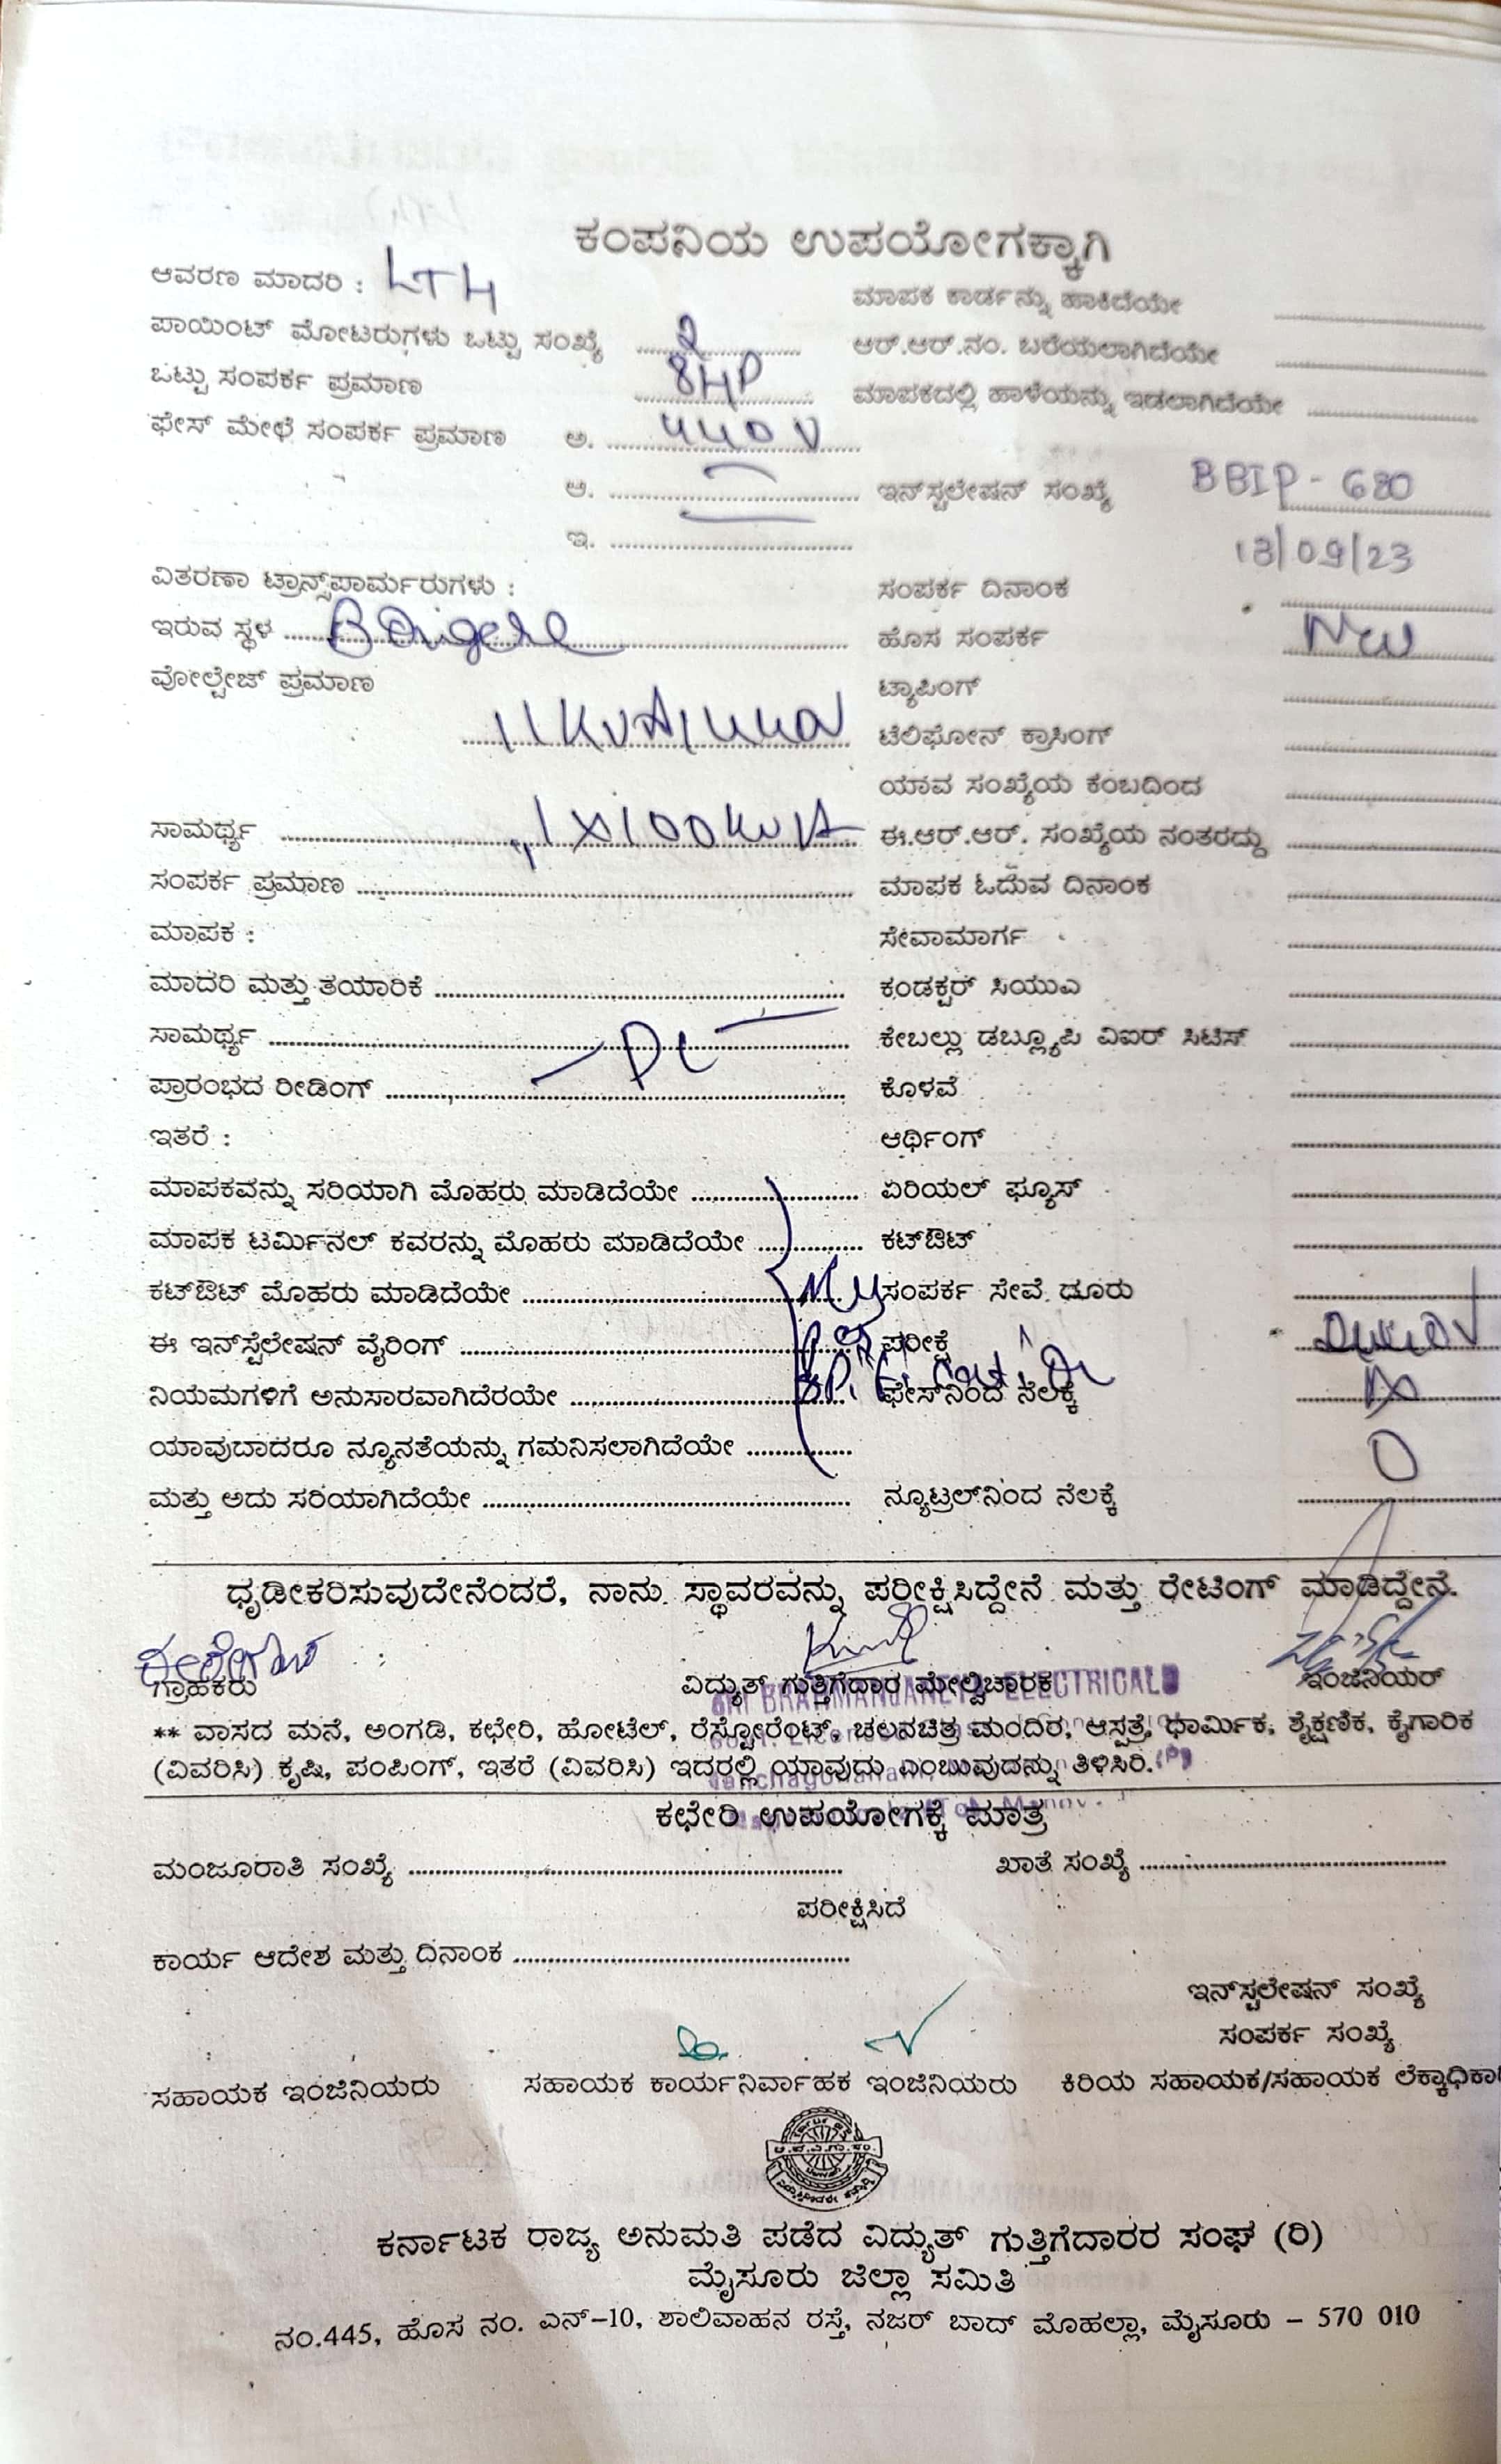 ಕಂಪನಿಯ ಉಪಯೋಗಕ್ಕಾಗಿ
ಆವರಣ ಮಾದರಿ : LT4
ಮಾಪಕ ಕಾರ್ಡನ್ನು ಹಾಕಿದೆಯೇ
ಪಾಯಿಂಟ್ ಮೋಟರುಗಳು ಒಟ್ಟು ಸಂಖ್ಯೆ
ಆರ್.ಆರ್.ನಂ. ಬರೆಯಲಾಗಿದೆಯೇ
ಒಟ್ಟು ಸಂಪರ್ಕ ಪ್ರಮಾಣ 8HP
ಮಾಪಕದಲ್ಲಿ ಹಾಳೆಯನ್ನು ಇಡಲಾಗಿದೆಯೇ
ಫೇಸ್ ಮೇಳೆ ಸಂಪರ್ಕ ಪ್ರಮಾಣ ಅ. 440 V
ಆ. ಇನ್‌ಸ್ಟಲೇಷನ್ ಸಂಖ್ಯೆ BBIP - 680
ಇ.
13/09/23
ವಿತರಣಾ ಟ್ರಾನ್ಸ್‌ಪಾರ್ಮರುಗಳು :
ಸಂಪರ್ಕ ದಿನಾಂಕ
ಇರುವ ಸ್ಥಳ
ಹೊಸ ಸಂಪರ್ಕ New
ವೋಲ್ಟೇಜ್ ಪ್ರಮಾಣ
ಟ್ಯಾಪಿಂಗ್
ಟೆಲಿಫೋನ್ ಕ್ರಾಸಿಂಗ್
ಯಾವ ಸಂಖ್ಯೆಯ ಕಂಬದಿಂದ
ಸಾಮರ್ಥ್ಯ 1X100KVA
ಈ.ಆರ್.ಆರ್. ಸಂಖ್ಯೆಯ ನಂತರದ್ದು
ಸಂಪರ್ಕ ಪ್ರಮಾಣ
ಮಾಪಕ ಓದುವ ದಿನಾಂಕ
ಮಾಪಕ :
ಸೇವಾಮಾರ್ಗ
ಮಾದರಿ ಮತ್ತು ತಯಾರಿಕೆ
ಕಂಡಕ್ಟರ್ ಸಿಯುಎ
ಸಾಮರ್ಥ್ಯ
ಕೇಬಲ್ಲು ಡಬ್ಲ್ಯೂಪಿ ವಿಐರ್ ಸಿಟಿಸ್
ಪ್ರಾರಂಭದ ರೀಡಿಂಗ್
ಕೊಳವೆ
ಇತರೆ :
ಆರ್ಥಿಂಗ್
ಮಾಪಕವನ್ನು ಸರಿಯಾಗಿ ಮೊಹರು ಮಾಡಿದೆಯೇ
ಏರಿಯಲ್ ಫ್ಯೂಸ್
ಮಾಪಕ ಟರ್ಮಿನಲ್ ಕವರನ್ನು ಮೊಹರು ಮಾಡಿದೆಯೇ
ಕಟ್‌ಔಟ್
ಕಟ್‌ಔಟ್ ಮೊಹರು ಮಾಡಿದೆಯೇ
ಸಂಪರ್ಕ ಸೇವೆ ದೂರು
ಈ ಇನ್‌ಸ್ಟೆಲೇಷನ್ ವೈರಿಂಗ್
ಪರೀಕ್ಷೆ
ನಿಯಮಗಳಿಗೆ ಅನುಸಾರವಾಗಿದೆರಯೇ
ಫೇಸ್‌ನಿಂದ ನೆಲಕ್ಕೆ
ಯಾವುದಾದರೂ ನ್ಯೂನತೆಯನ್ನು ಗಮನಿಸಲಾಗಿದೆಯೇ
ಮತ್ತು ಅದು ಸರಿಯಾಗಿದೆಯೇ
ನ್ಯೂಟ್ರಲ್‌ನಿಂದ ನೆಲಕ್ಕೆ 0
ಧೃಡೀಕರಿಸುವುದೇನೆಂದರೆ, ನಾನು ಸ್ಥಾವರವನ್ನು ಪರೀಕ್ಷಿಸಿದ್ದೇನೆ ಮತ್ತು ರೇಟಿಂಗ್ ಮಾಡಿದ್ದೇನೆ.
ಗ್ರಾಹಕರು ವಿದ್ಯುತ್ ಗುತ್ತಿಗೆದಾರ ಮೇಲ್ವಿಚಾರಕ ಇಂಜಿನಿಯರ್
** ವಾಸದ ಮನೆ, ಅಂಗಡಿ, ಕಛೇರಿ, ಹೋಟೆಲ್, ರೆಸ್ಟೋರೆಂಟ್, ಚಲನಚಿತ್ರ ಮಂದಿರ, ಆಸ್ಪತ್ರೆ, ಧಾರ್ಮಿಕ, ಶೈಕ್ಷಣಿಕ, ಕೈಗಾರಿಕ
(ವಿವರಿಸಿ) ಕೃಷಿ, ಪಂಪಿಂಗ್, ಇತರೆ (ವಿವರಿಸಿ) ಇದರಲ್ಲಿ ಯಾವುದು ಎಂಬುವುದನ್ನು ತಿಳಿಸಿರಿ.
ಕಛೇರಿ ಉಪಯೋಗಕ್ಕೆ ಮಾತ್ರ
ಮಂಜೂರಾತಿ ಸಂಖ್ಯೆ ಖಾತೆ ಸಂಖ್ಯೆ
ಪರೀಕ್ಷಿಸಿದೆ
ಕಾರ್ಯ ಆದೇಶ ಮತ್ತು ದಿನಾಂಕ
ಇನ್‌ಸ್ಟಲೇಷನ್ ಸಂಖ್ಯೆ
ಸಂಪರ್ಕ ಸಂಖ್ಯೆ
ಸಹಾಯಕ ಇಂಜಿನಿಯರು ಸಹಾಯಕ ಕಾರ್ಯನಿರ್ವಾಹಕ ಇಂಜಿನಿಯರು ಕಿರಿಯ ಸಹಾಯಕ/ಸಹಾಯಕ ಲೆಕ್ಕಾಧಿಕಾರಿ
ಕರ್ನಾಟಕ ರಾಜ್ಯ ಅನುಮತಿ ಪಡೆದ ವಿದ್ಯುತ್ ಗುತ್ತಿಗೆದಾರರ ಸಂಘ (ರಿ)
ಮೈಸೂರು ಜಿಲ್ಲಾ ಸಮಿತಿ
ನಂ.445, ಹೊಸ ನಂ. ಎನ್-10, ಶಾಲಿವಾಹನ ರಸ್ತೆ, ನಜರ್ ಬಾದ್ ಮೊಹಲ್ಲಾ, ಮೈಸೂರು – 570 010